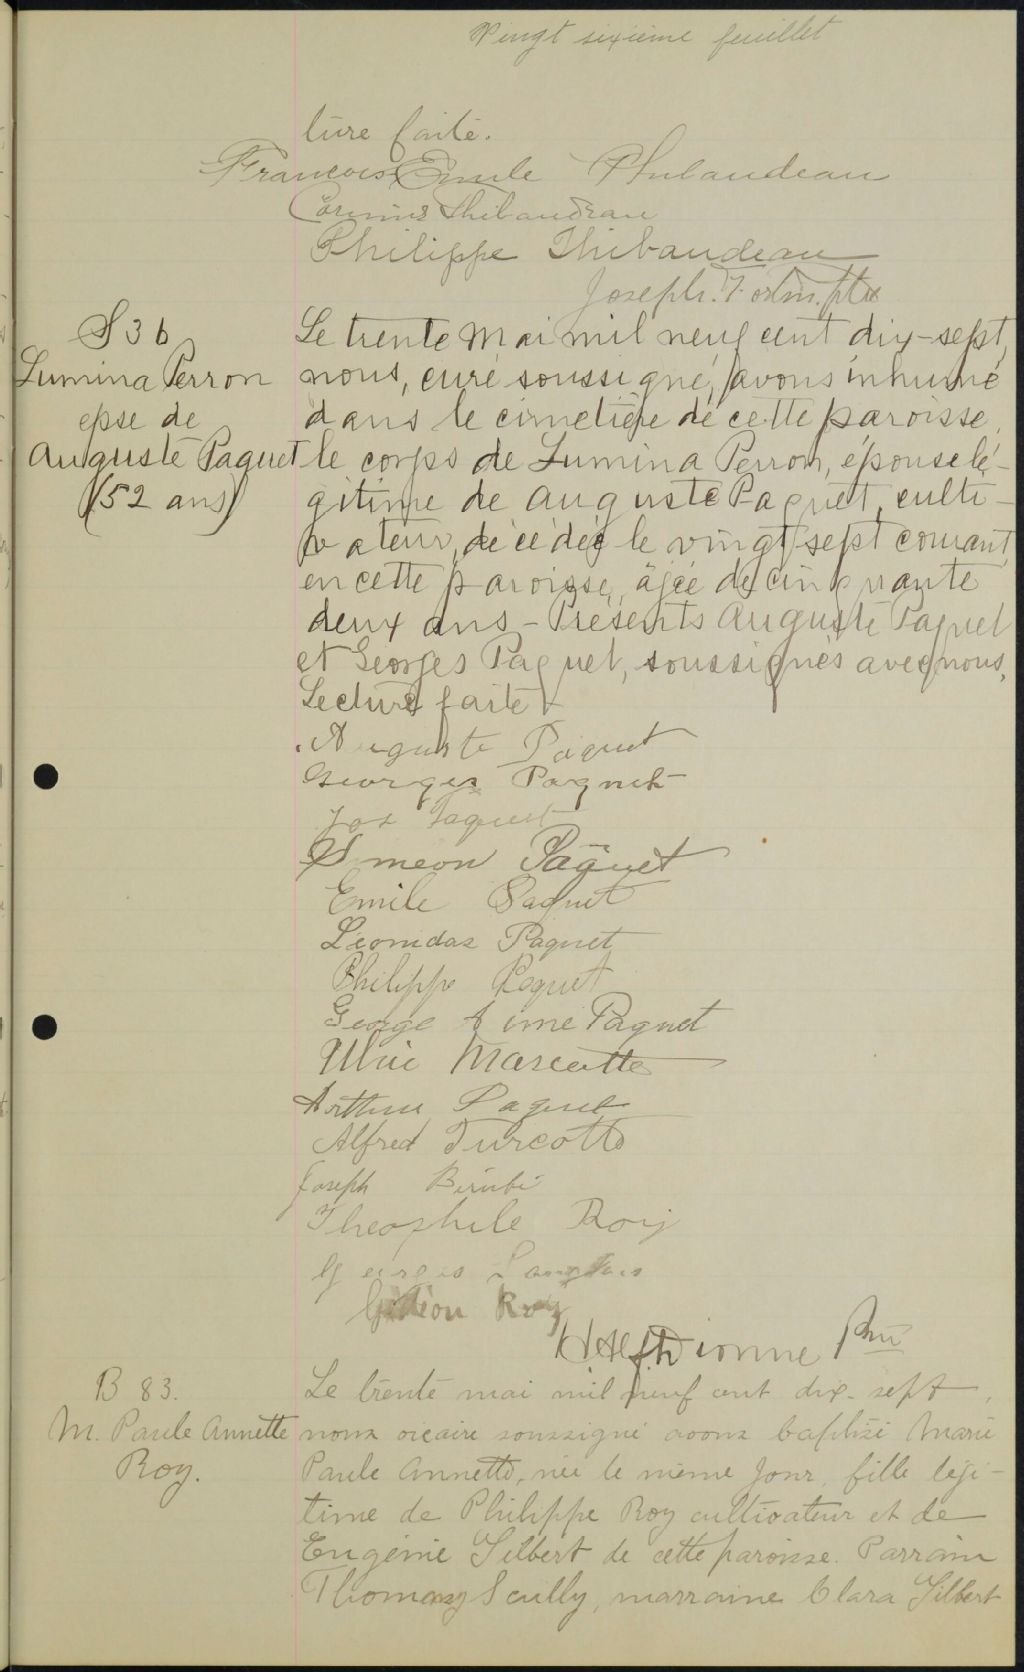 Vingt sixième feuillet
ture faite.
François Emile Thibaudeau
Corinne Thibaudeau
Philippe Thibaudeau
Joseph. Fortin. ptre
S 36
Lumina Perron
epse de
Auguste Paquet
(52 ans)
Le trente Mai mil neuf cent dix-sept,
nous, curé soussigné, avons inhumé
dans le cimetière de cette paroisse,
le corps de Lumina Perron, épouse lé-
gitime de Auguste Paquet, culti-
vateur, décédée le vingt sept courant,
en cette paroisse, âgée de cinquante
deux ans - Présents Auguste Paquet
et Georges Paquet, soussignés avec nous,
Lecture faite
Auguste Paquet
Georges Paquet
Jos Paquet
Simeon Pâquet
Emile Paquet
Léonidas Paquet
Philippe Paquet
George Aimé Paquet
Ulric Marcotte
Arthur Paquet
Alfred Turcotte
Joseph Bérubé
Theophile Roy
Georges Langlais
Gédéon Roy
Dionne Ptre
B 83.
M. Paule Annette
Roy.
Le trente mai mil neuf cent dix-sept,
nous vicaire soussigné avons baptisé Marie
Paule Annette, née le même jour, fille légi-
time de Philippe Roy cultivateur et de
Eugénie Gilbert de cette paroisse. Parrain
Thomas Scully, marraine Clara Gilbert